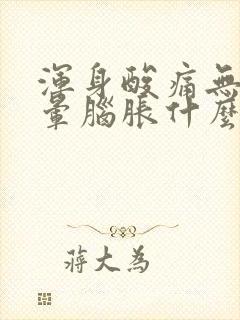 渾身酸痛無
暈腦脹什麼
蔣大為